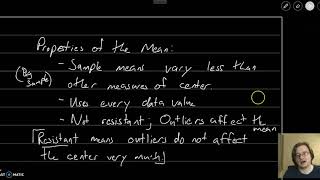 Properties of the Mean:
- Sample means vary less than
(Big Sample)
other measures of center.
- Uses every data value
- Not resistant; Outliers affect the mean
[Resistant means outliers do not affect
the center very much]